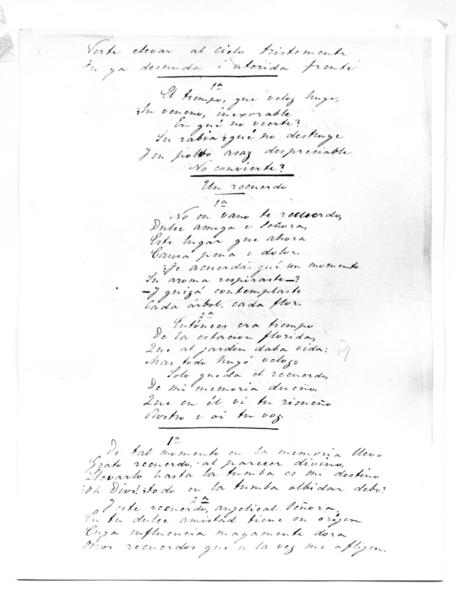 Verte elevar al cielo tristemente
Tu ya desnuda i aterida frente
1ª
El tiempo, que veloz huye,
Su veneno, inexorable
En qué no vierte?
Su rabia qué no destruye
I en polvo asaz despreciable
No convierte?
Un recuerdo
1ª
No en vano te recuerdo,
Dulce amiga e Señora,
Este lugar que ahora
Causa pena e dolor.
Te acuerdas qué un momento
Su aroma respiraste?
I quizá contemplaste
Cada árbol, cada flor.
2ª
Entónces era tiempo
De la estacion florida,
Que al jardin daba vida:
Mas todo huyó veloz
Solo queda el recuerdo,
De mi memoria dueño,
Que en él vi tu risueño
Rostro e oi tu voz
1ª
De tal momento en la memoria llevo
Grato recuerdo, al parecer divino,
Llevarlo hasta la tumba es mi destino
Oh Dios! todo en la tumba olvidar debo?
2ª
I este recuerdo, angelical Señora,
En tu dulce amistad tiene su origen
Cuya influencia magamente dora
Otros recuerdos que a la vez me afligen.